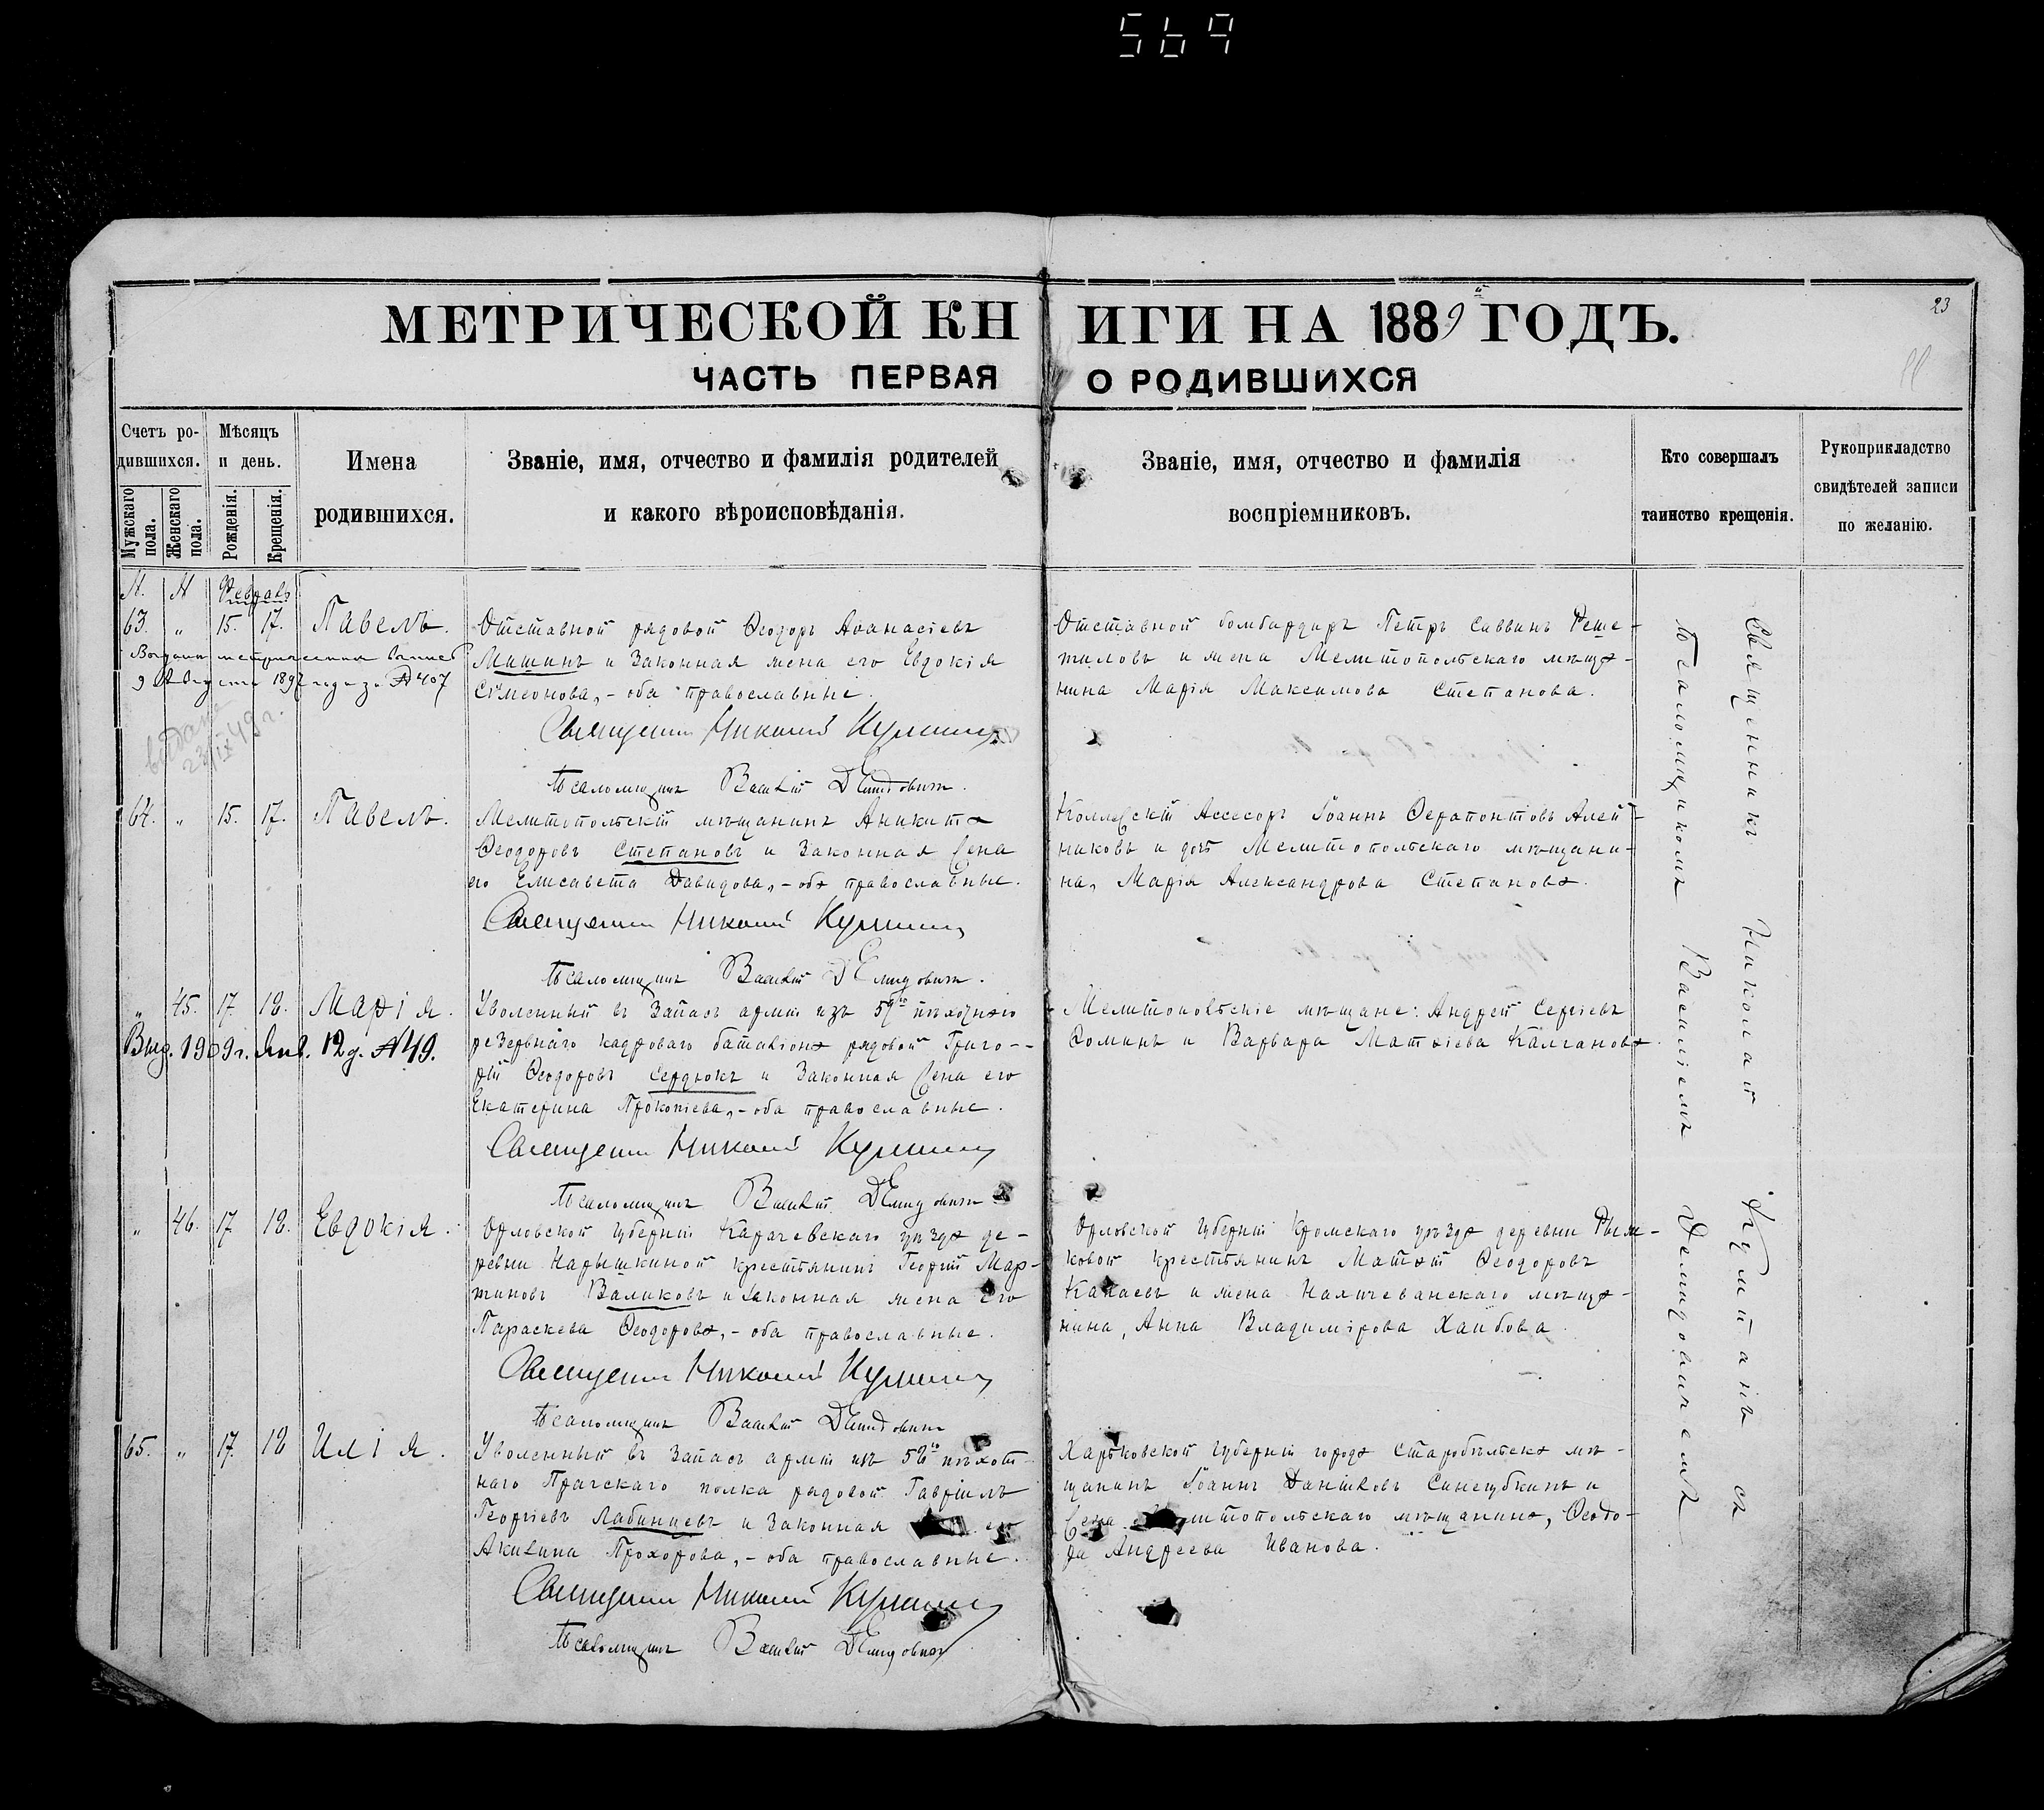 569
МЕТРИЧЕСКОЙ КНИГИ НА 1889й ГОДЪ.
23
ЧАСТЬ ПЕРВАЯ О РОДИВШИХСЯ
Счетъ родившихся.
Мужскаго пола.
Женскаго пола.
Мѣсяцъ и день.
Рожденія.
Крещенія.
Имена
родившихся.
Званіе, имя, отчество и фамилія родителей
и какого вѣроисповѣданія.
Званіе, имя, отчество и фамилія
воспріемниковъ.
Кто совершалъ
таинство крещенія.
Рукоприкладство
свидѣтелей записи
по желанію.
Февраль
63. " 15. 17. Павелъ.
Отставной рядовой Ѳеодоръ Аѳанасіевъ
Мишинъ и законная жена его Евдокія
Сѵмеонова, - оба православные.
Священникъ Николай
Псаломщикъ Василій Демидовичъ.
9 Августа 1897 года за № 407
видано
23/IX 49 г.
Отставной бомбардиръ Петръ Саввинъ Реше-
тиловъ и жена Мелитопольскаго мѣща-
нина Марія Максимова Степанова.
64. " 15. 17. Павелъ.
Мелитопольскій мѣщанинъ Аникита
Ѳеодоровъ Степановъ и законная жена
его Елисавета Давидова, - оба православные.
Священникъ Николай
Псаломщикъ Василій Демидовичъ.
Коллежскій Ассесоръ Іоаннъ Ѳерапонтовъ Алей-
никовъ и дочь Мелитопольскаго мѣщани-
на, Марія Александрова Степанова.
" 45. 17. 18. Марія.
Выд. 1909 г. Янв. 12 д. № 49.
Уволенный въ запасъ арміи изъ 59го пѣхотнаго
резервнаго кадроваго баталіона рядовой Григо-
рій Ѳеодоровъ Сердюкъ и законная жена его
Екатерина Прокопіева, - оба православные.
Священникъ Николай
Псаломщикъ Василій Демидовичъ
Мелитопольскіе мѣщане: Андрей Сергіевъ
Ѳоминъ и Варвара Матѳіева Калганова.
" 46. 17 18. Евдокія.
Орловской губерніи Карачевскаго уѣзда де-
ревни Нарышкиной крестьянинъ Георгій Мар-
тиновъ Валиковъ и законная жена его
Параскева Ѳеодорова, - оба православные.
Священникъ Николай
Псаломщикъ Василій Демидовичъ
Орловской губерніи Кромскаго уѣзда деревни
ковой крестьянинъ Матѳій Ѳеодоровъ
Капаевъ и жена Нахичеванскаго мѣща-
нина, Анна Владимірова Хаибова.
65. " 17. 18 Илія.
Уволенный въ запасъ арміи изъ 58го пѣхот-
наго Прагскаго полка рядовой Гавріилъ
Георгіевъ Лабинцевъ и законная его
Акилина Прохорова, - оба православные.
Священникъ Николай
Псаломщикъ Василій Демидовичъ
Харьковской губерніи города Старобѣльска мѣ-
щанинъ Іоаннъ Даніиловъ Синегубкинъ и
жена итопольскаго мѣщанина, Ѳеодо-
ра Андреева Иванова.
Священникъ Николай съ
псаломщикомъ Василіемъ Демидовичемъ